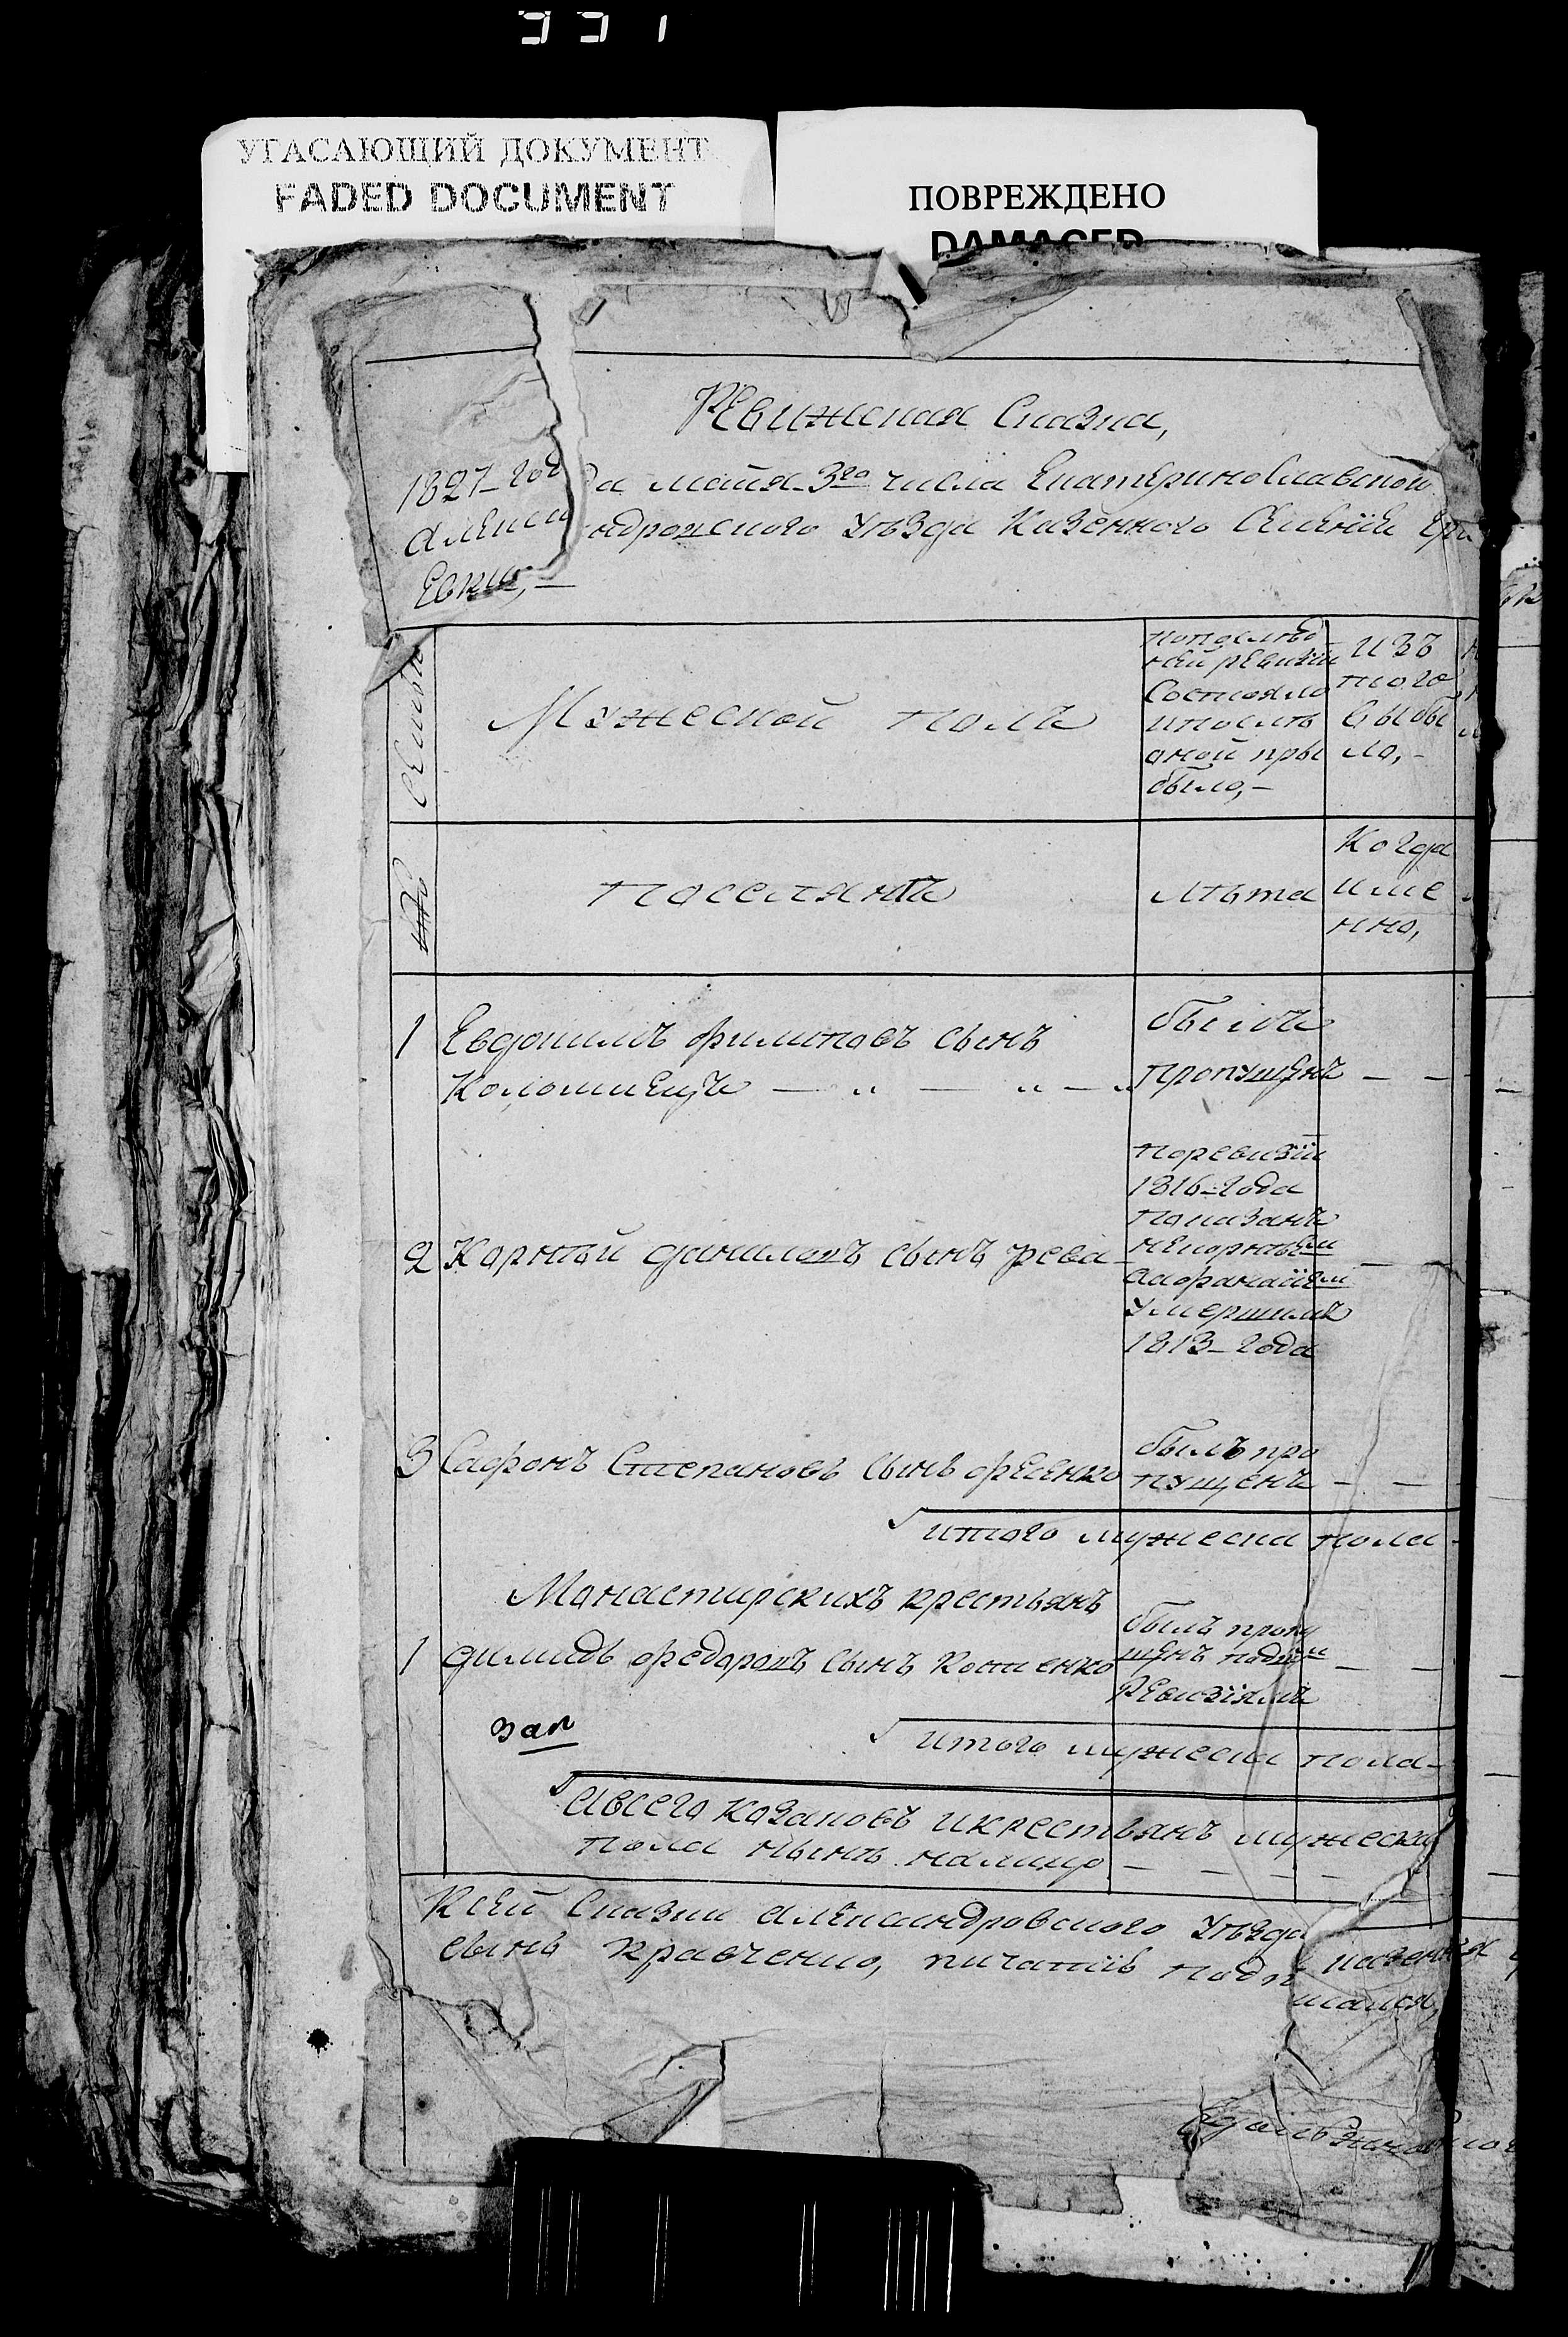 331
УГАСАЮЩИЙ ДОКУМЕНТ
FADED DOCUMENT
ПОВРЕЖДЕНО
DAMAGED
Ревижская Сказка,
1827-года майя 3го числа Екатеринославской
Александровского Уѣзда Казенного Селенія
Евки,-
Семьи
Мужеской полъ
попослѣд
ней ревизіи
Состояло
ипослѣ
оной при
было,-
изъ
того
выбы
ло,-
поселянѣ
лѣта
Когда
име
нно,
1 Евдокимъ филиповъ сынъ
Коломиецъ
былъ
пропущенъ
поревизіи
1816-года
показанъ
некорнѣем
аафанасіем
умершимъ
1813-года
2 Корнѣй даниловъ сынъ рева
3 Сафронъ Степановъ сынъ фесенко
былъ про
пущенъ
итого мужеска пола
Монастирскихъ крестьянъ
1 димидъ федоровъ сынъ Костенко
былъ пропу
щенъ
Ревизіямъ
зап
итого мужеска пола
Авсего козаковъ икрестьянъ мужеска
пола нынѣ налицо
Ксей Сказки александровского Уѣзда
сынъ Кравченко,